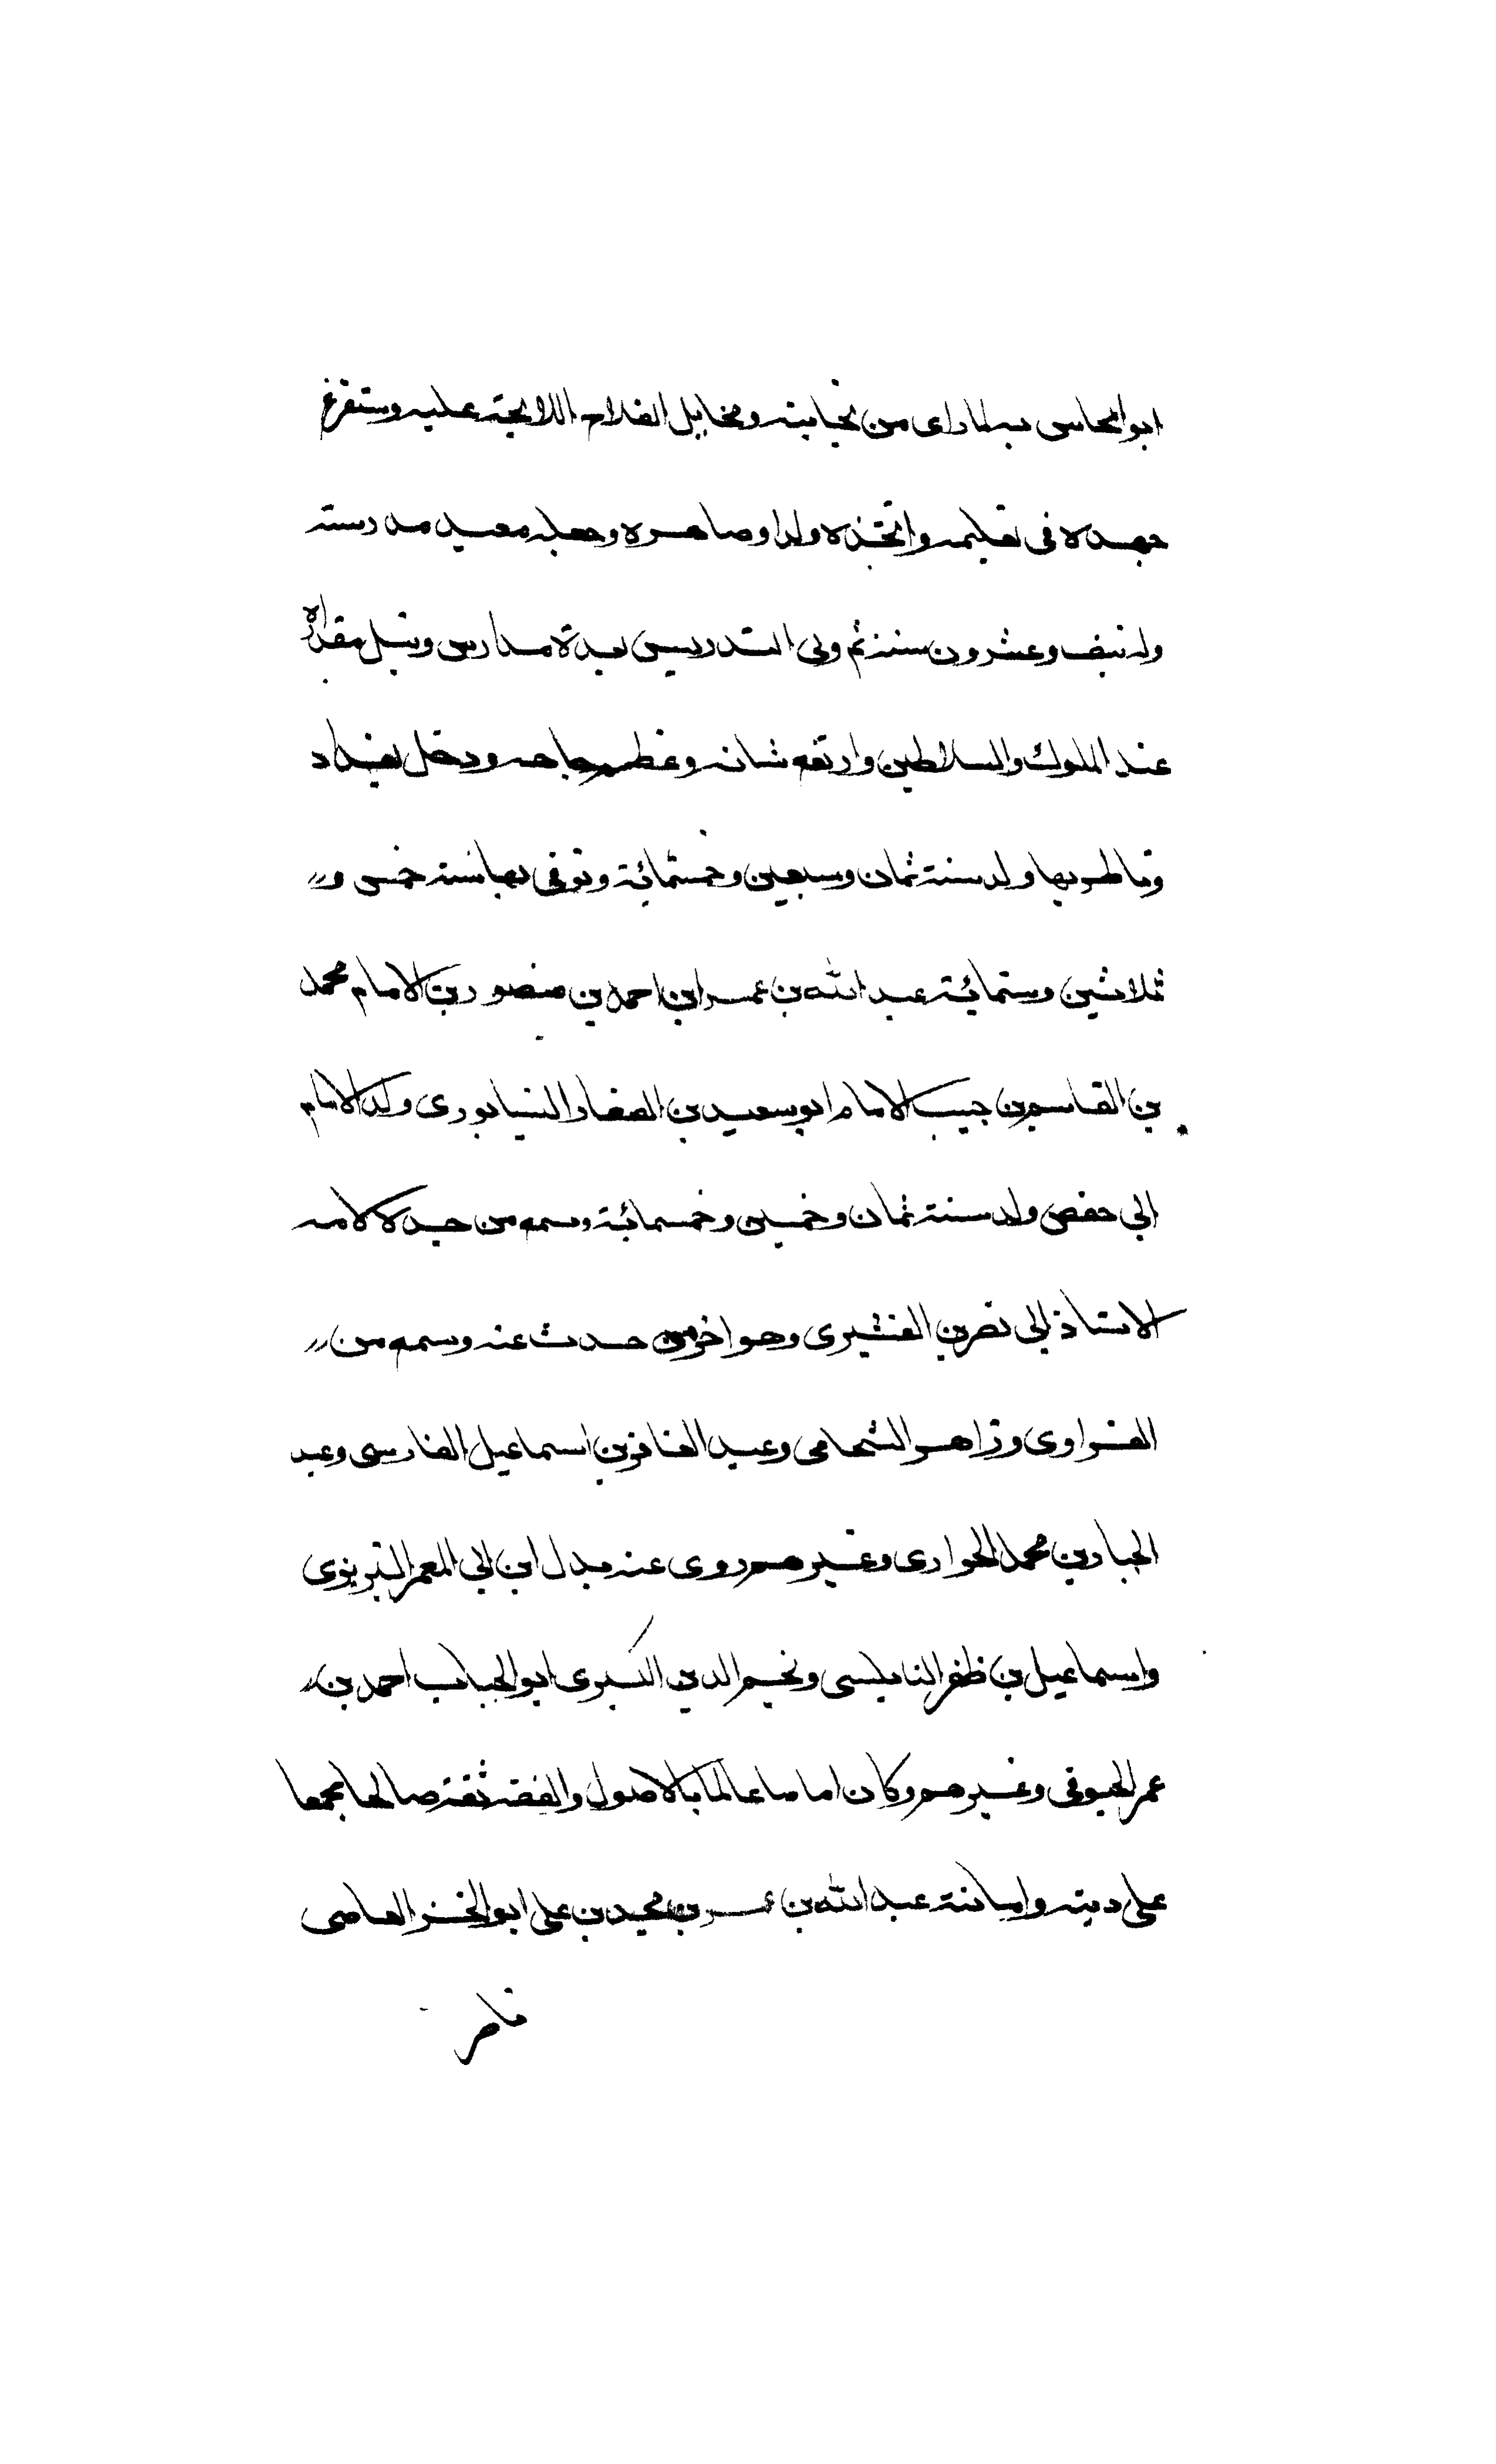 ابو المحاسن به لما راى من نجابته ومخايل الفلاح اللايحة عليه وستفرغ
جهده فى تعليمه واتخذه ولدا وصاهره وجعله معيد مدرسته
وله نيف وعشرون سنة ثم ولى التدريس بعدة مدارس ونبل مقداره
عند الملوك والسلاطين وارتفع شانه وعظم جاهه ودخل بغداد
وناظر بها ولد سنة ثمان وسبعين وخمسمائة وتوفى بها سنة خمس و
ثلاثين وستمائة عبد الله بن عمر ابن احمد بن منصور بن الامام محمد
بن القاسم بن حبيب الامام ابو سعيد بن الصفار النيسابورى ولد الامام
ابى حفص ولد سنة ثمان وخمسين وخمسمائة وسمع من جده لامه
الاستاذ ابى نصر بن القشيرى وهو اخر من حدث عنه وسمع من
الفراوى وزاهر الشحامى وعبد الغافر بن اسماعيل الفارسى وعبد
الجبار بن محمد الخوارى وغيرهم روى عنه بدل ابن ابى المعمر التبريزى
واسماعيل بن ظفر النابلسى ونجم الدين الكبرى ابو الجناب احمد بن
عمر الخيوقى وغيرهم وكان اماما عالما بالاصول والفقه ثقة صالحا مجمعا
على دينه وامانته عبد الله بن عمر بن محمد بن على ابو الخير القاضى
ناصر